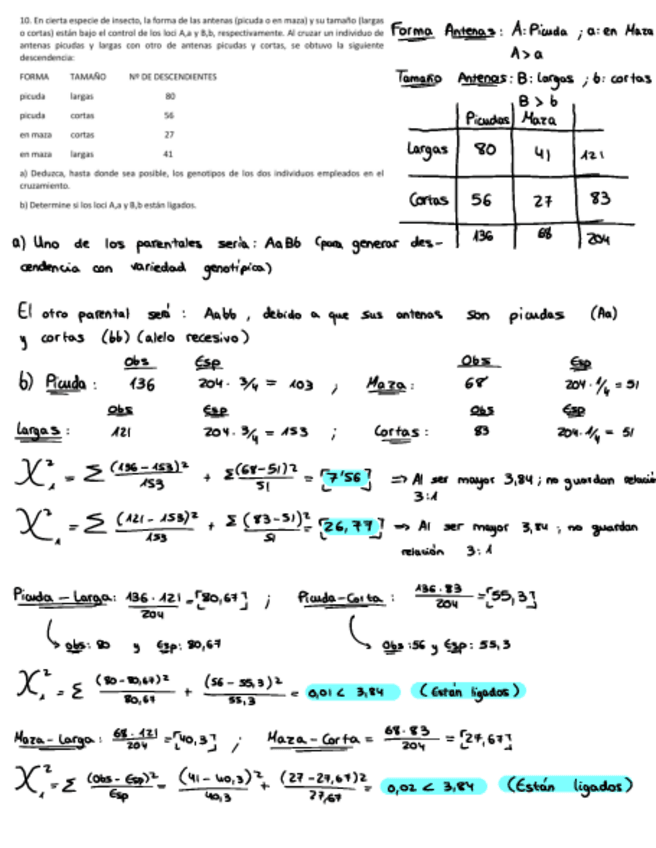 10. En cierta especie de insecto, la forma de las antenas (picuda o en maza) y su tamaño (largas
o cortas) están bajo el control de los loci A,a y B,b, respectivamente. Al cruzar un individuo de
antenas picudas y largas con otro de antenas picudas y cortas, se obtuvo la siguiente
descendencia:
FORMA TAMAÑO Nº DE DESCENDIENTES
picuda largas 80
picuda cortas 56
en maza cortas 27
en maza largas 41
a) Deduzca, hasta donde sea posible, los genotipos de los dos individuos empleados en el
cruzamiento.
b) Determine si los loci A,a y B,b están ligados.
Forma Antenas: A: Picuda ; a: en Maza
A>a
Tamaño Antenas: B: largas ; b: cortas
B > b
Picudas Maza
Largas 80 41 121
Cortas 56 27 83
136 68 204
a) Uno de los parentales sería: AaBb (para generar des-
cendencia con variedad genotípica)
El otro parental será: Aabb, debido a que sus antenas son picudas (Aa)
y cortas (bb) (alelo recesivo)
Obs Esp Obs Esp
b) Picuda: 136 204 · 3/4 = 103 ; Maza: 68 204 · 1/4 = 51
Obs Esp Obs Esp
Largas: 121 204 · 3/4 = 153 ; Cortas: 83 204 · 1/4 = 51
X²₁ = Σ (136-153)²/153 + Σ(68-51)²/51 = [7'56] => Al ser mayor 3,84; no guardan relación
3:1
X²₁ = Σ (121-153)²/153 + Σ(83-51)²/51 = [26,77] => Al ser mayor 3,84 ; no guardan
relación 3:1
Picuda - Larga: 136 · 121/204 = [80,67] ; Picuda-Corta: 136 · 83/204 = [55,3]
obs: 80 y Esp: 80,67 Obs: 56 y Esp: 55,3
X²₁ = Σ (80-80,67)²/80,67 + (56-55,3)²/55,3 = 0,01 < 3,84 (Están ligados)
Maza-Larga: 68 · 121/204 = [40,3] ; Maza-Corta = 68 · 83/204 = [27,67]
X²₁ = Σ (Obs - Esp)²/Esp = (41-40,3)²/40,3 + (27-27,67)²/27,67 = 0,02 < 3,84 (Están ligados)